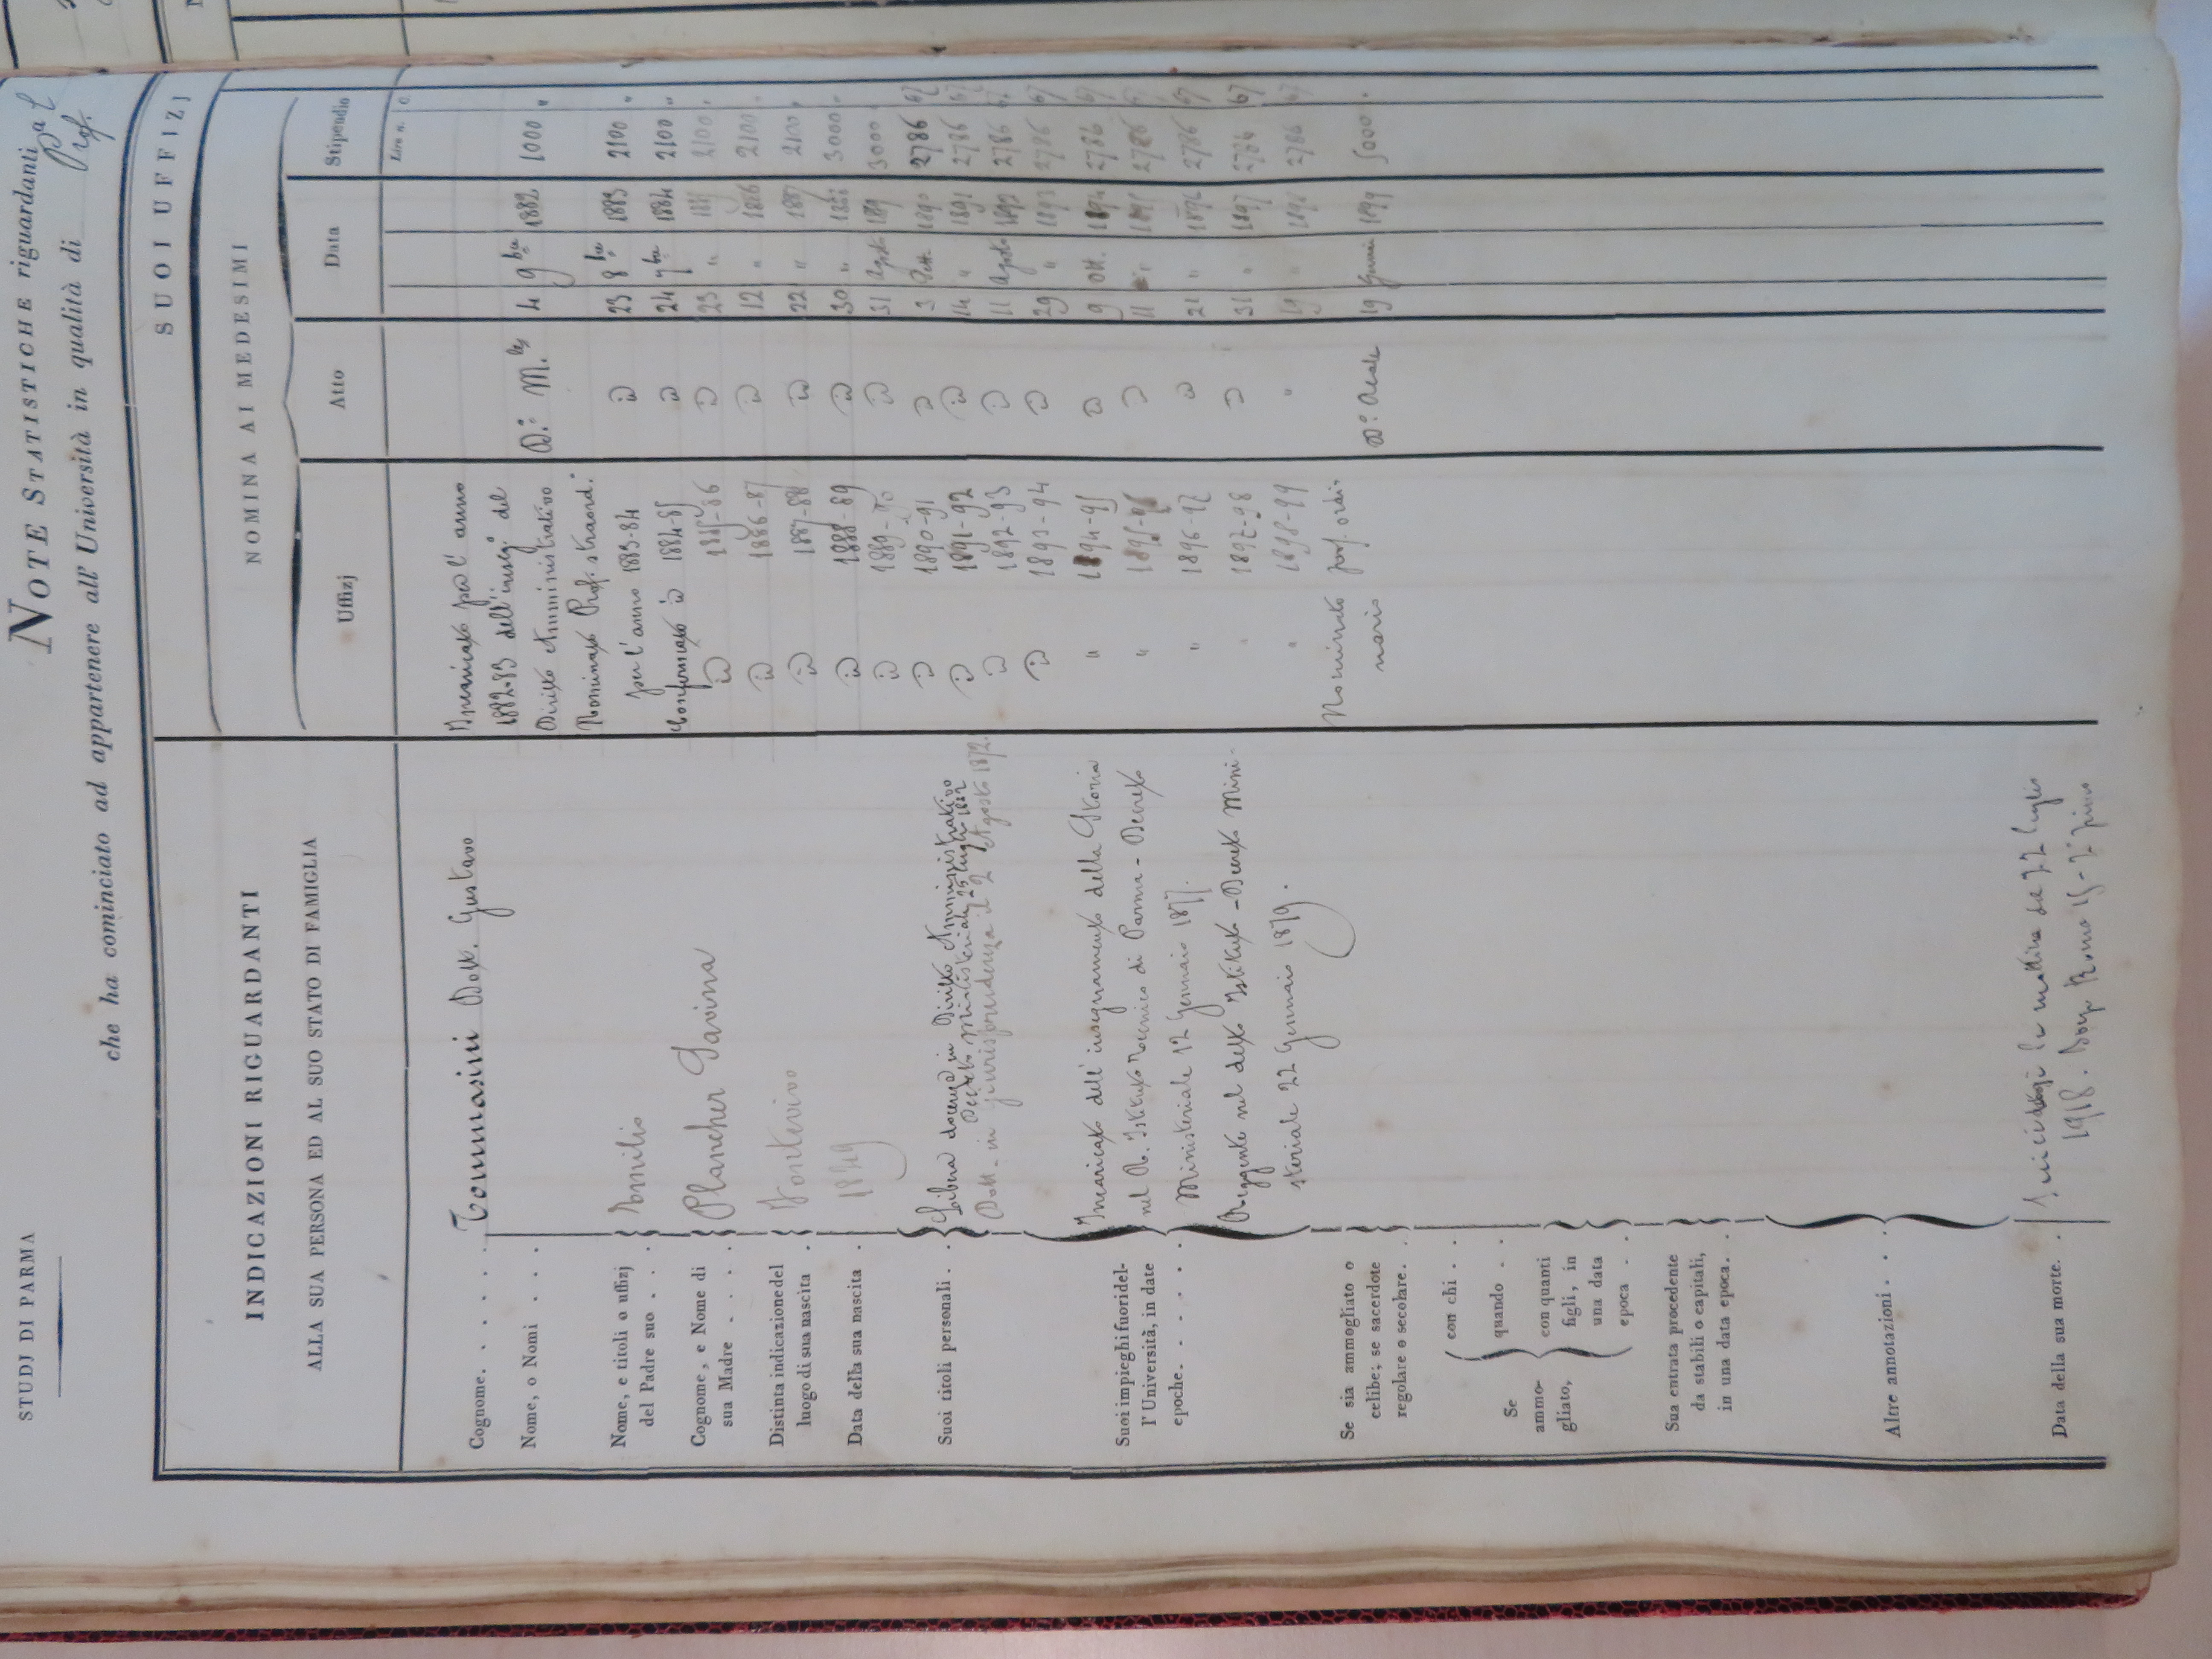 STUDJ DI PARMA
NOTE STATISTICHE riguardanti
che ha cominciato ad appartenere all' Università in qualità di Prof.
INDICAZIONI RIGUARDANTI
ALLA SUA PERSONA ED AL SUO STATO DI FAMIGLIA
SUOI UFFIZJ
NOMINA AI MEDESIMI
Uffizj
Atto
Data
Stipendio
Lire n. | c.
Cognome. . . . . Tommasini Dott. Gustavo
Nome, o Nomi . . .
Nome, e titoli o uffizj
del Padre suo . . . Emilio
Cognome, e Nome di
sua Madre . . . . Plancher Savina
Distinta indicazione del
luogo di sua nascita . Fontevivo
Data della sua nascita . 1849
Suoi titoli personali . . Libera docenza in Diritto Amministrativo
Decreto Ministeriale 25 luglio 1882
Dott. in giurisprudenza il 2 Agosto 1872.
Suoi impieghi fuori del-
l' Università, in date
epoche. . . . . .
Incaricato dell' insegnamento della Storia
nel R. Istituto Tecnico di Parma - Decreto
Ministeriale 12 Gennaio 1877.
Reggente nel detto Istituto - Decreto Mini-
steriale 22 Gennaio 1879.
Se sia ammogliato o
celibe; se sacerdote
regolare o secolare. .
Se
ammo-
gliato,
con chi . .
quando . .
con quanti
figli, in
una data
epoca . .
Sua entrata procedente
da stabili o capitali,
in una data epoca. . .
Altre annotazioni . . .
Data della sua morte. .
la mattina del 22 luglio
1918.
Incaricato per l' anno
1882-83 dell' inseg.º del
Diritto Amministrativo D.º M.les 4 9bre 1882 1000 "
Nominato Prof. straord.º
per l' anno 1883-84 id 23 8bre 1883 2100 "
Confermato id 1884-85 id 24 9bre 1884 2100 "
id 1885-86 id 23 " 1885 2100 "
id 1886-87 id 12 " 1886 2100 "
id 1887-88 id 22 " 1887 2100 "
id 1888-89 id 30 " 1888 3000 "
id 1889-90 id 31 Agosto 189 3000
id 1890-91 id 3 Ott. 1890 2786 67
id 1891-92 id 14 " 1891 2786 67
id 1892-93 id 11 Agosto 1892 2786 67
id 1893-94 id 29 " 1893 2786 67
" 1894-95 id 9 Ott. 1894 2786 67
" 1895-96 id 11 " 1895 2786 67
" 1896-97 id 21 " 1896 2786 67
" 1897-98 id 31 " 1897 2786 67
" 1898-99 " 19 " 1898 2786 67
Nominato prof. ordi-
nario D.º Reale 19 1899 5000 .